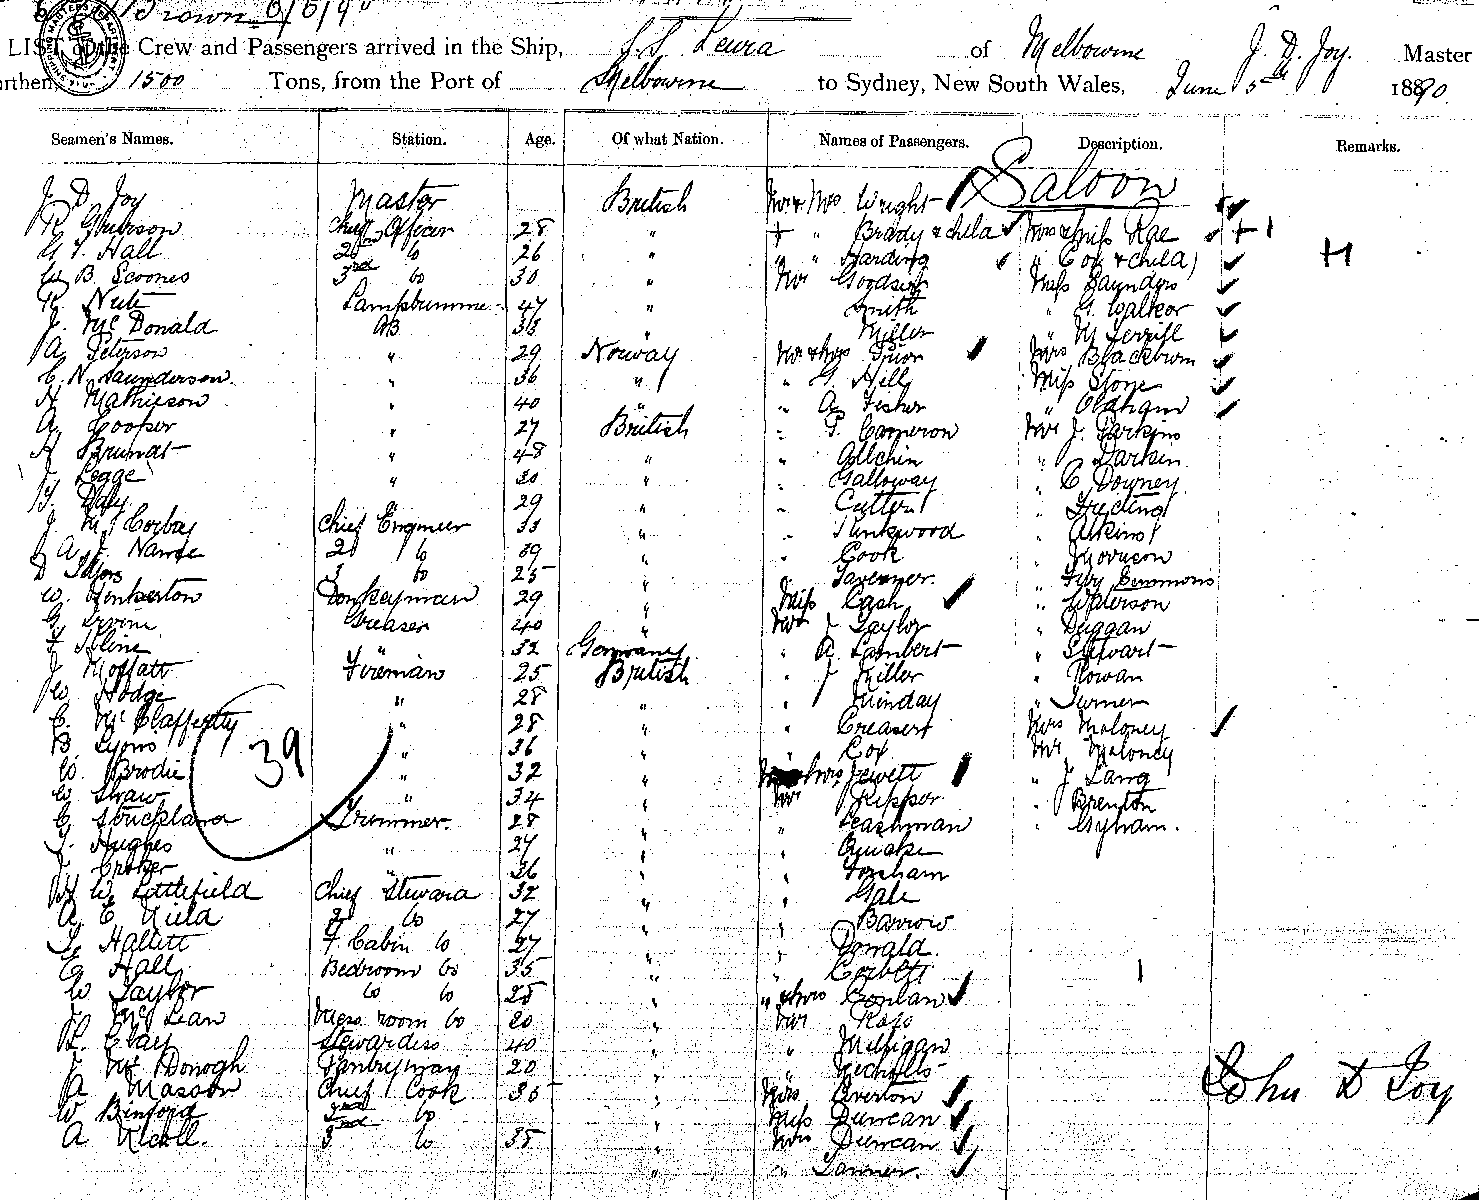 Brown 6/6/90
LIST of the Crew and Passengers arrived in the Ship, S.S. Leura of Melbourne J. D. Joy. Master
Burthen 1500 Tons, from the Port of Melbourne to Sydney, New South Wales, June 5th 1890.
Seamen's Names. Station. Age. Of what Nation. Names of Passengers. Description. Remarks.
Saloon
J D Joy Master British Mr & Mrs Wright
Chief Officer 28 " + " Brady & child Mrs & Miss Rae + 1
G. T. Hall 2nd Do 26 " " " Harding " Cox & child H
W B Scoones 3rd Do 30 " Mr Miss Saunders
Lamptrimmer 47 " Smith " G. Walker
J. Mc Donald AB 33 " Miller "
A Peterson " 29 Norway Mr & Mrs Prior Mrs Blackburn
C. N. Saunderson. " 36 " " G. Hill Miss Stone
H Mathieson " 40 " " A Fisher " Oldham
A Cooper " 27 British " T. Cameron Mr J. Parkins
H " 48 " " Allchin " Larkin
J. Legge " 30 " " Galloway " C Downey
Daly " 29 " " Cutter "
J M Corbay Chief Engineer 33 " " Punkwood " Atkins
A J. 2 Do 39 " " Cook " Morrison
D 3 Do 25 " " Taverner. " Simmons
W. Pinkerton Donkeyman 29 " Miss Cash " Waterson
G. Irvine Greaser 40 " Mr J Taylor " Duggan
" 32 Germany " A Lambert " Stewart
J. Moffatt Fireman 25 British " J Miller " Rowan
W Hodge " 28 " " Munday " Turner
C. Mc Clafferty " 28 " " Creaser Mrs Moloney
B Lyons " 36 " " Cox Mr Moloney
39
W. Brodie " 32 " Mrs Jewett " J Lang
W Shaw " 34 " Mr Kipper " Brenton
C Strickland Trimmer. 28 " " Leashman "
T. Hughes " 27 " "
J. Croker " 26 " " Foxham
W. Littlefield Chief Steward 32 " " Gale
A. C 2 Do 27 " " Barrow
Hallett F. Cabin Do 27 " " Donald
Hall Bedroom Do 35 " " Corbett
W Taylor Do Do 28 " " & Mrs Conlan
J. McLean Mess room Do 20 " Mr Ross
Clay Stewardess 40 " " Milligan
J. McDonogh Pantryman 20 " " Nicholls
A Masson Chief Cook 36 " Mrs Overton
W Binford 2nd Do " Miss Duncan
A 3 Do 35 " Mrs Duncan
" " Tanner.
John D Joy